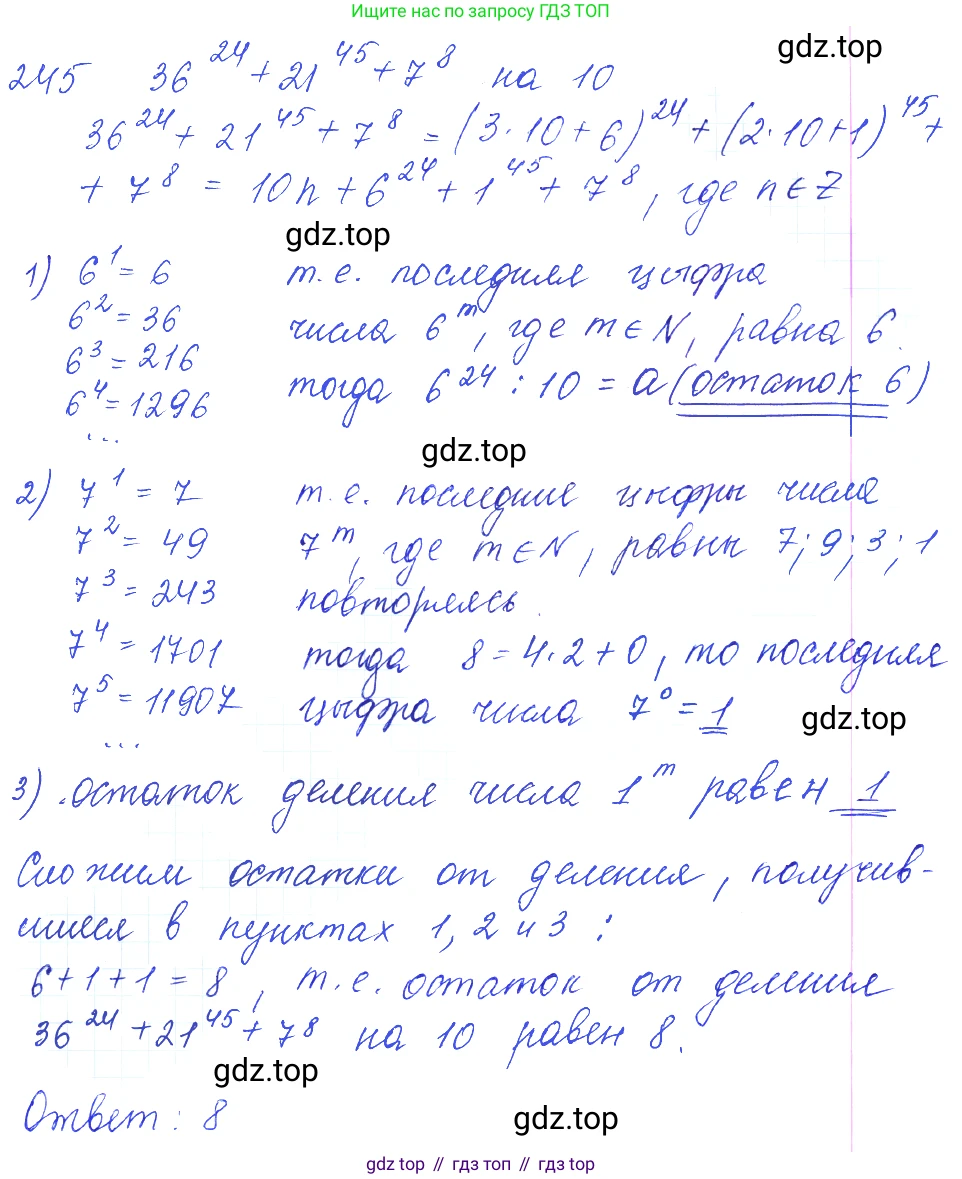 Ищите нас по запросу ГДЗ ТОП
gdz.top
245 36^24 + 21^45 + 7^8 на 10
36^24 + 21^45 + 7^8 = (3·10+6)^24 + (2·10+1)^45 +
+ 7^8 = 10n + 6^24 + 1^45 + 7^8, где n∈Z
gdz.top
1) 6^1 = 6 т.е. последняя цыфра
6^2 = 36 числа 6^m, где m∈N, равна 6.
6^3 = 216
тогда 6^24 : 10 = a (остаток 6)
6^4 = 1296
...
gdz.top
2) 7^1 = 7 т.е. последние цыфры числа
7^2 = 49 7^m, где m∈N, равны 7; 9; 3; 1
7^3 = 243 повторяясь.
7^4 = 1701 тогда 8 = 4·2+0, то последняя
7^5 = 11907 цыфра числа 7^0 = 1
gdz.top
...
3) остаток деления числа 1^m равен 1
Сложим остатки от деления, получив-
шиеся в пунктах 1, 2 и 3:
6+1+1 = 8, т.е. остаток от деления
36^24 + 21^45 + 7^8 на 10 равен 8.
gdz.top
Ответ: 8
gdz.top
gdz top // гдз топ // гдз top